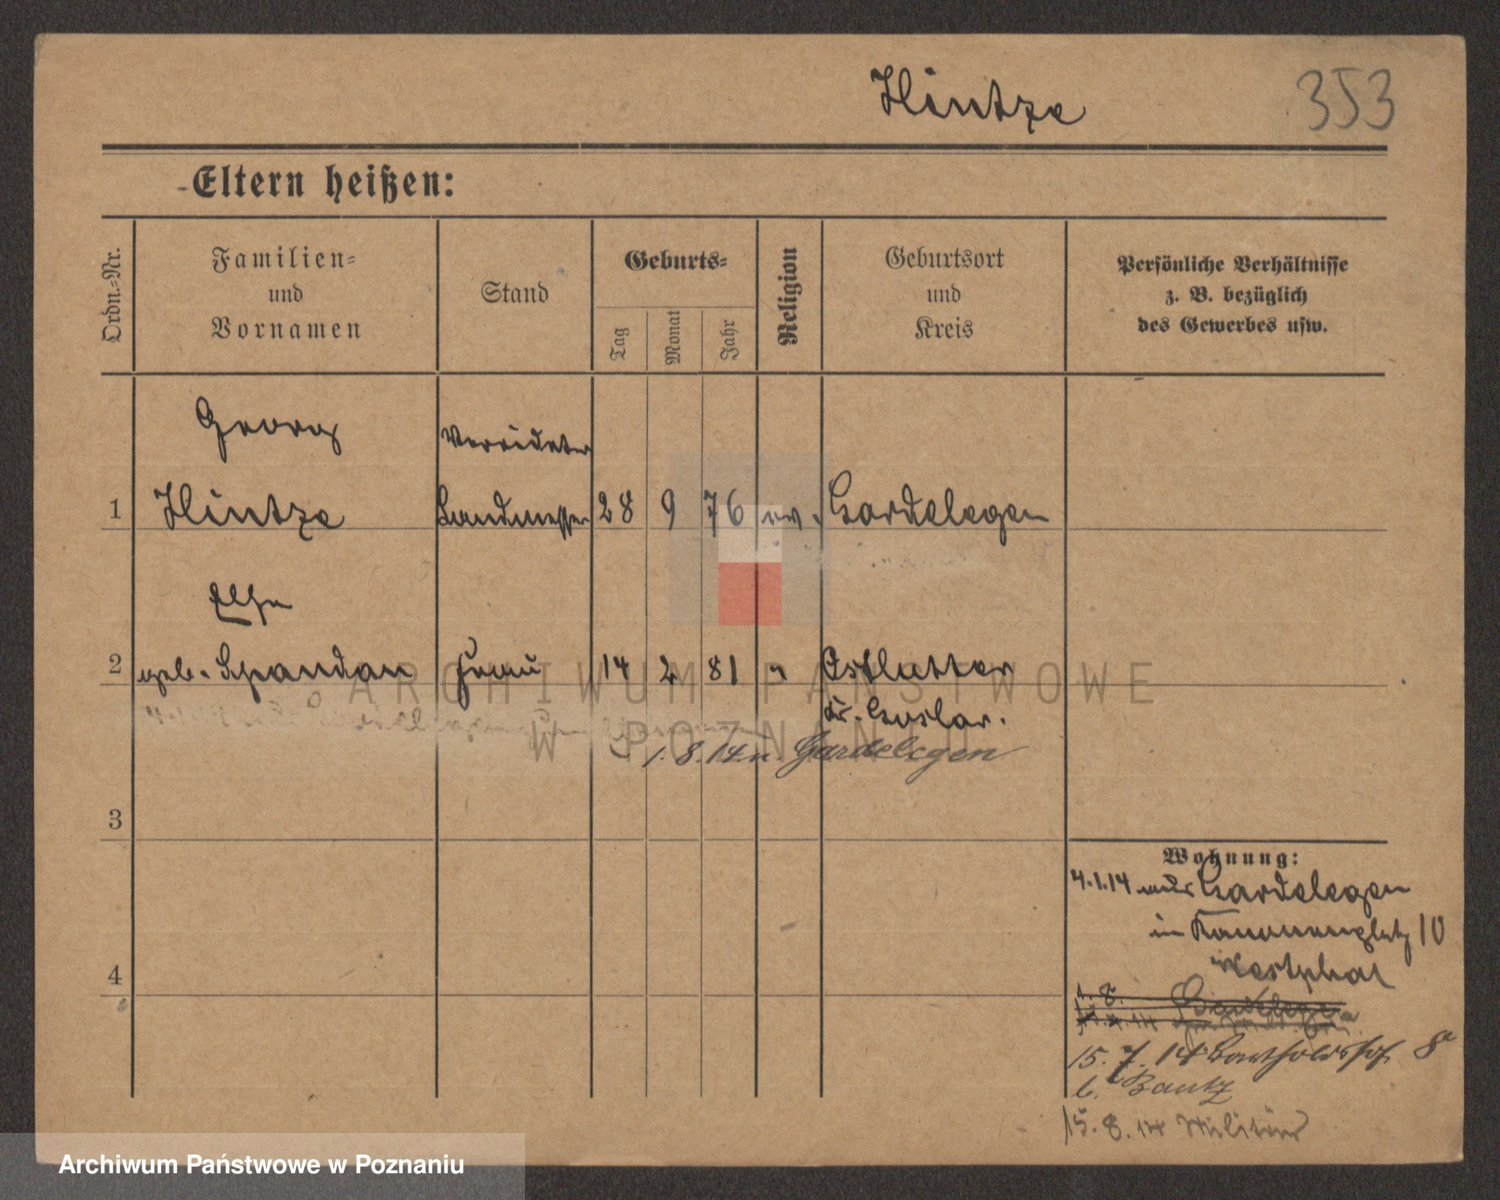 Hintze 353
Eltern heißen:
Ordn.-Nr.
Familien-
und
Vornamen
Stand
Geburts-
Tag
Monat
Jahr
Religion
Geburtsort
und
Kreis
Persönliche Verhältnisse
z. B. bezüglich
des Gewerbes usw.
Georg vereideter
1 Hintze Landmesser 28 9 76 ev. Gardelegen
Else
2 geb. Spandau Frau 14 2 81 " Ostlutter
Kr. Goslar.
1.8.14 n. Gardelegen
3
4
Wohnung:
4.1.14 aus Gardelegen
in Kanonenplatz 10
Westphal
1. 8. Gardelegen
15. 7. 14 Bartholdshof 8
b. Bautz
15. 8. 14 Militär
ARCHIWUM PAŃSTWOWE
W POZNANIU
Archiwum Państwowe w Poznaniu